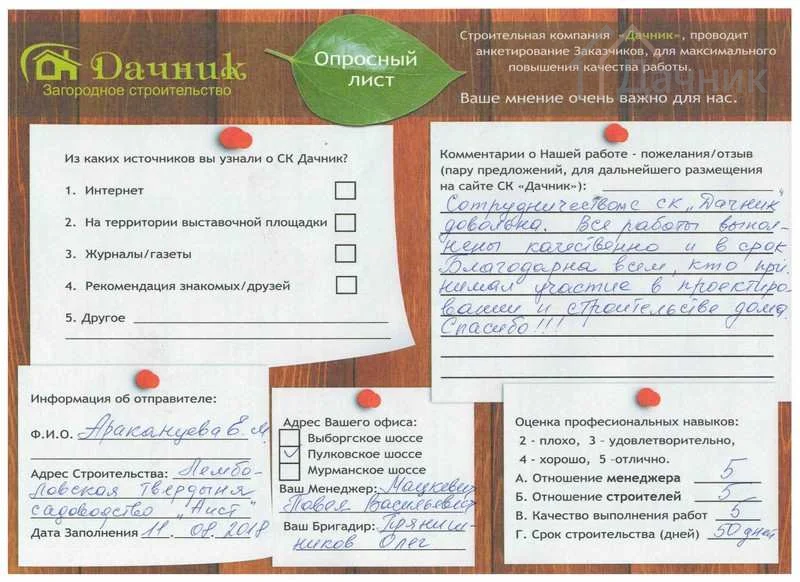 Дачник
Загородное строительство
Опросный
лист
Строительная компания «Дачник», проводит
анкетирование Заказчиков, для максимального
повышения качества работы.
Ваше мнение очень важно для нас.
Дачник
Из каких источников вы узнали о СК Дачник?
1. Интернет
2. На территории выставочной площадки
3. Журналы/газеты
4. Рекомендация знакомых/друзей
5. Другое
Комментарии о Нашей работе - пожелания/отзыв
(пару предложений, для дальнейшего размещения
на сайте СК «Дачник»):
Сотрудничеством с СК „Дачник
довольна. Все работы выпол-
нены качественно и в срок
Благодарна всем, кто при-
нимал участие в проектиро-
вании и строительстве дома.
Спасибо!!!
Информация об отправителе:
Ф.И.О. Араканцева Е.М.
Адрес Строительства: Лембо-
ловская твердыня
садоводство „Аист"
Дата Заполнения 11. 08. 2018
Адрес Вашего офиса:
Выборгское шоссе
Пулковское шоссе
Мурманское шоссе
Ваш Менеджер: Мацкевич
Павел Васильевич
Ваш Бригадир: Пряниш-
ников Олег
Оценка профессиональных навыков:
2 - плохо, 3 - удовлетворительно,
4 - хорошо, 5 -отлично.
А. Отношение менеджера 5
Б. Отношение строителей 5
В. Качество выполнения работ 5
Г. Срок строительства (дней) 50 дней